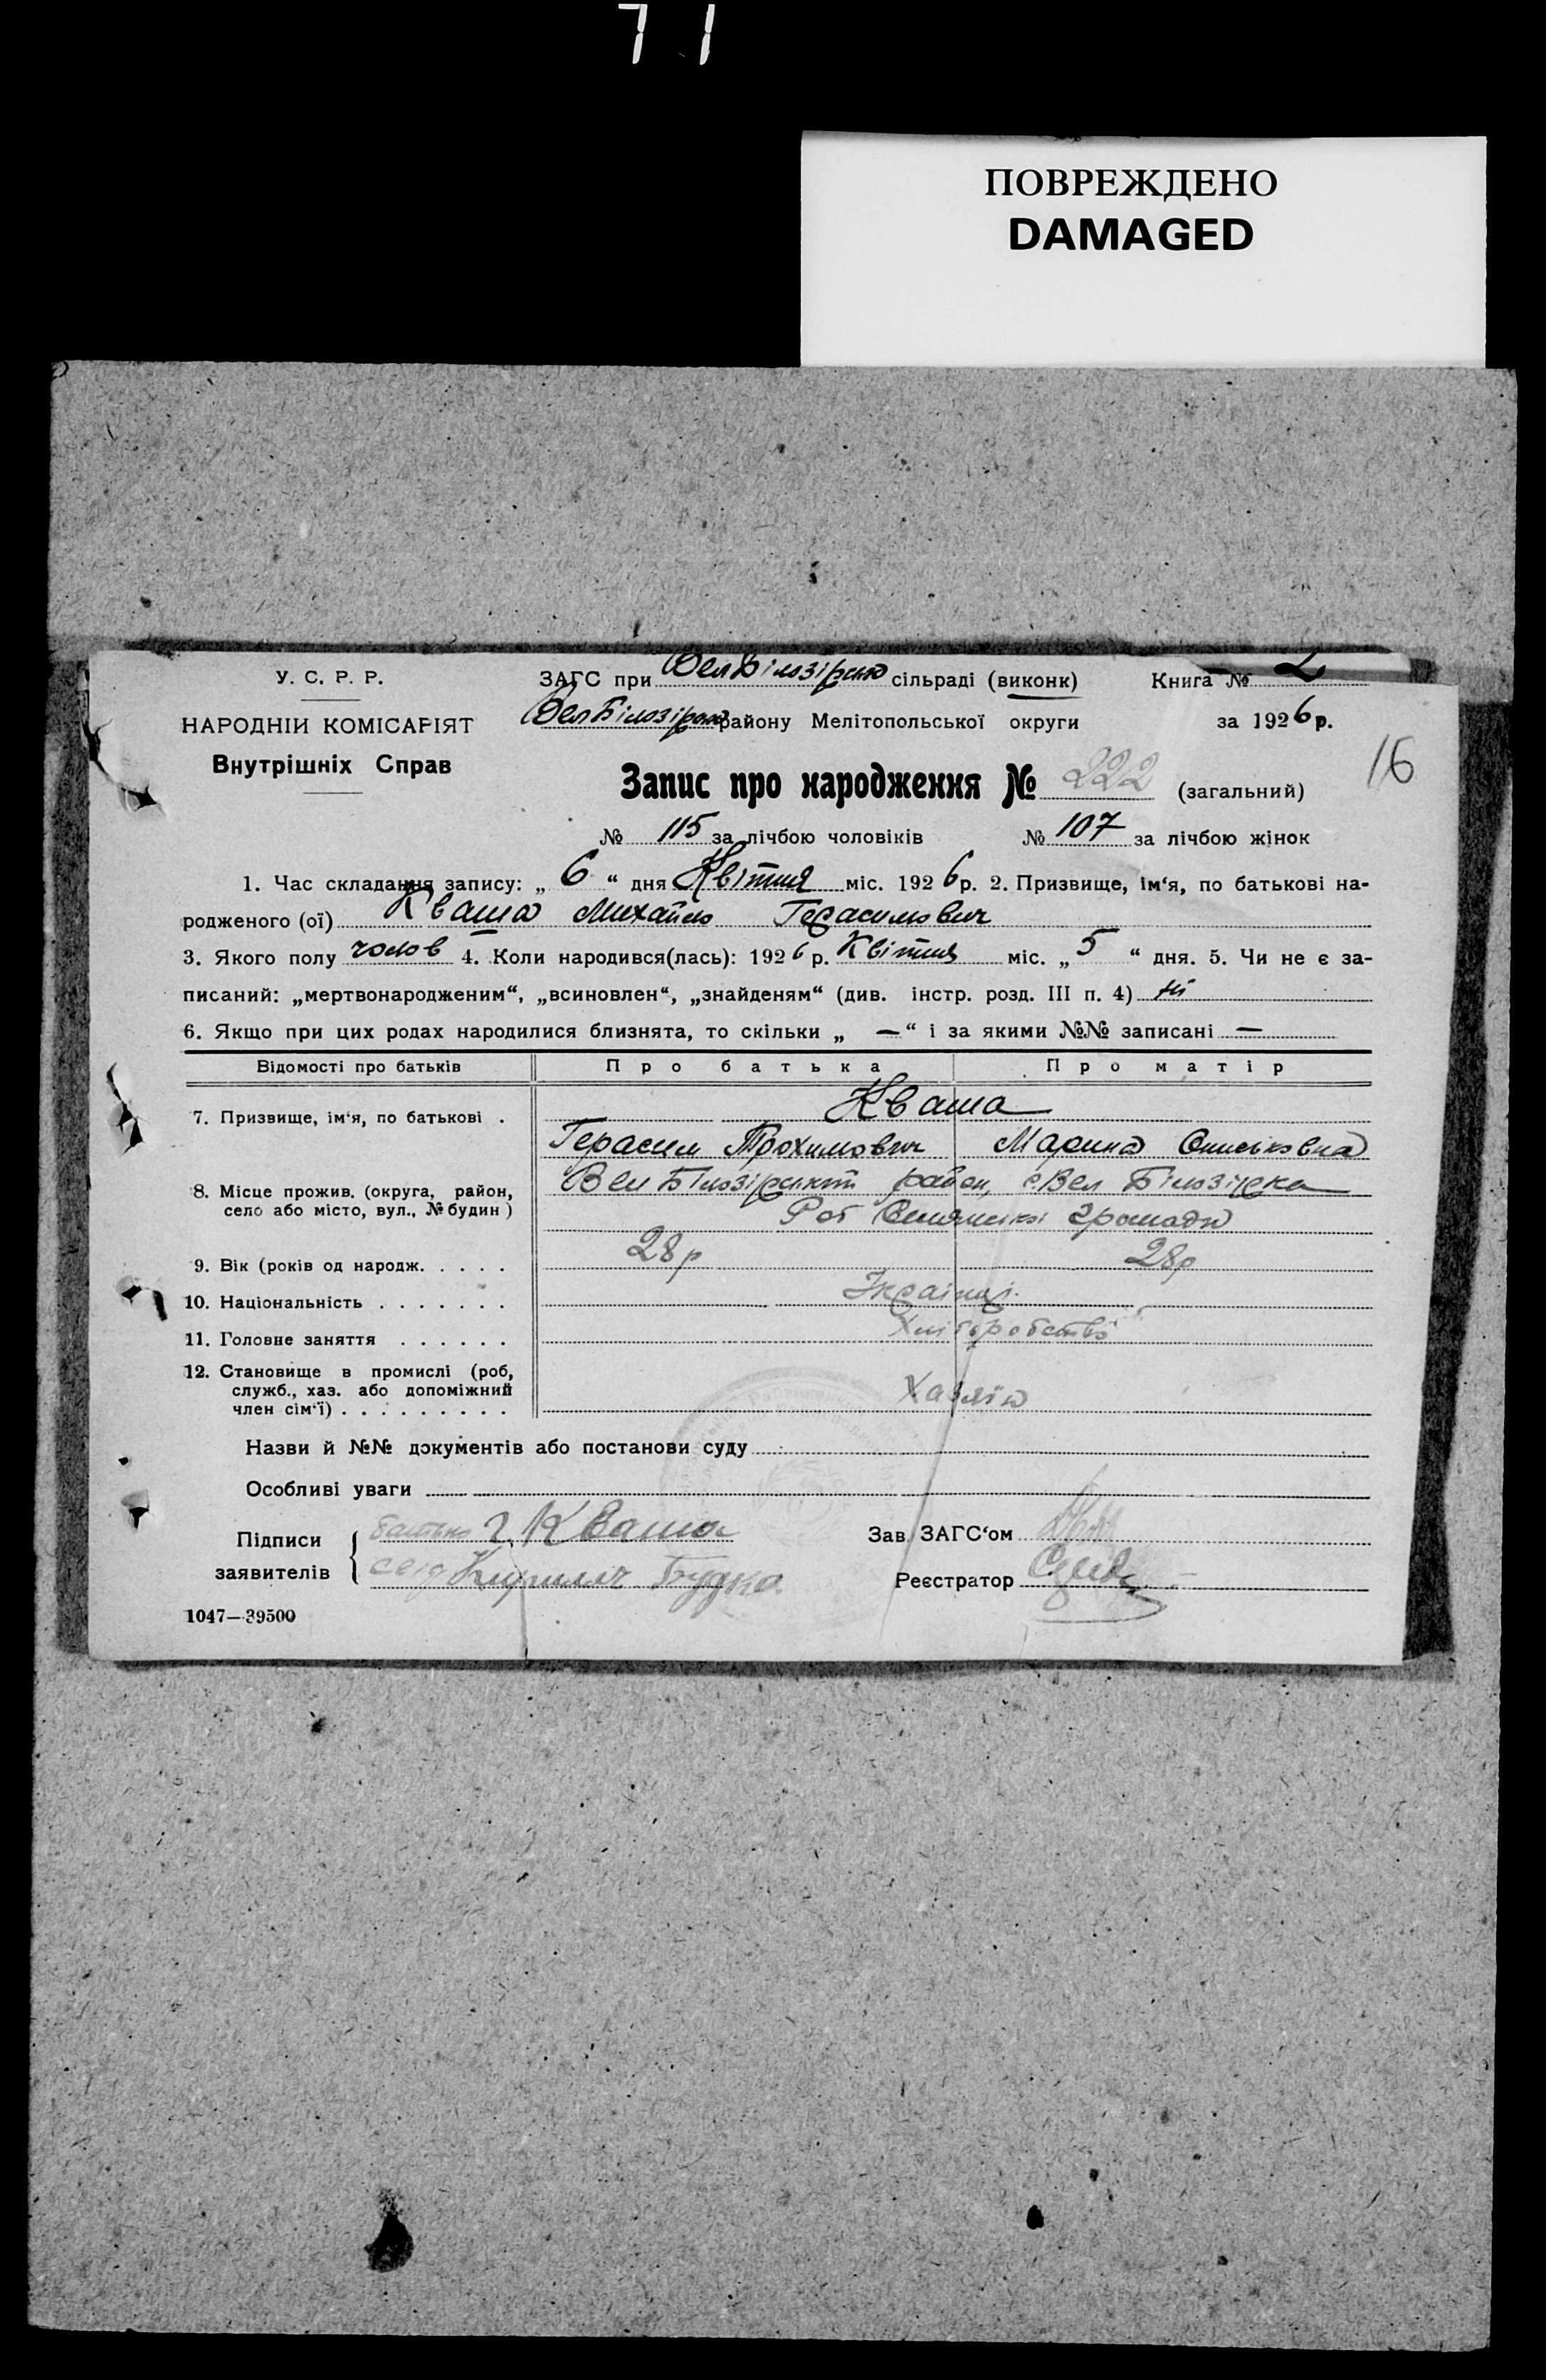 71
ПОВРЕЖДЕНО
DAMAGED
У. С. Р. Р.
НАРОДНІЙ КОМІСАРІЯТ
Внутрішніх Справ
ЗАГС при ВелБілозірськ сільраді (виконк)
Книга № 2
ВелБілозірськ району Мелітопольської округи
за 1926 р.
16
Запис про народження № 222 (загальний)
№ 115 за лічбою чоловіків № 107 за лічбою жінок
1. Час складання запису: „ 6 “ дня Квітня міс. 1926 р. 2. Призвище, ім‘я, по батькові на-
родженого (ої) Кваша Михайло Герасимович
3. Якого полу чолов 4. Коли народився(лась): 1926 р. Квітня міс. „ 5 “ дня. 5. Чи не є за-
писаний: „мертвонародженим“, „всиновлен“, „знайденям“ (див. інстр. розд. III п. 4) ні
6. Якщо при цих родах народилися близнята, то скільки „ — “ і за якими №№ записані —
Відомості про батьків Про батька Про матір
7. Призвище, ім‘я, по батькові . Кваша
Герасим Трохимович Марина Ониськовна
8. Місце прожив. (округа, район,
село або місто, вул., № будин)
Вел Білозірський район, с Вел Білозірка
громади
9. Вік (років од народж. . . . . 28р 28р
10. Національність . . . . . . . Українці
11. Головне заняття . . . . . . Хліборобство
12. Становище в промислі (роб,
служб., хаз. або допоміжний
член сім‘ї) . . . . . . . . . Хазяїн
Назви й №№ документів або постанови суду
Особливі уваги
Підписи
заявителів
батько Г. Кваша
свід Кирило Будко
Зав. ЗАГС‘ом
Реєстратор
1047—39500